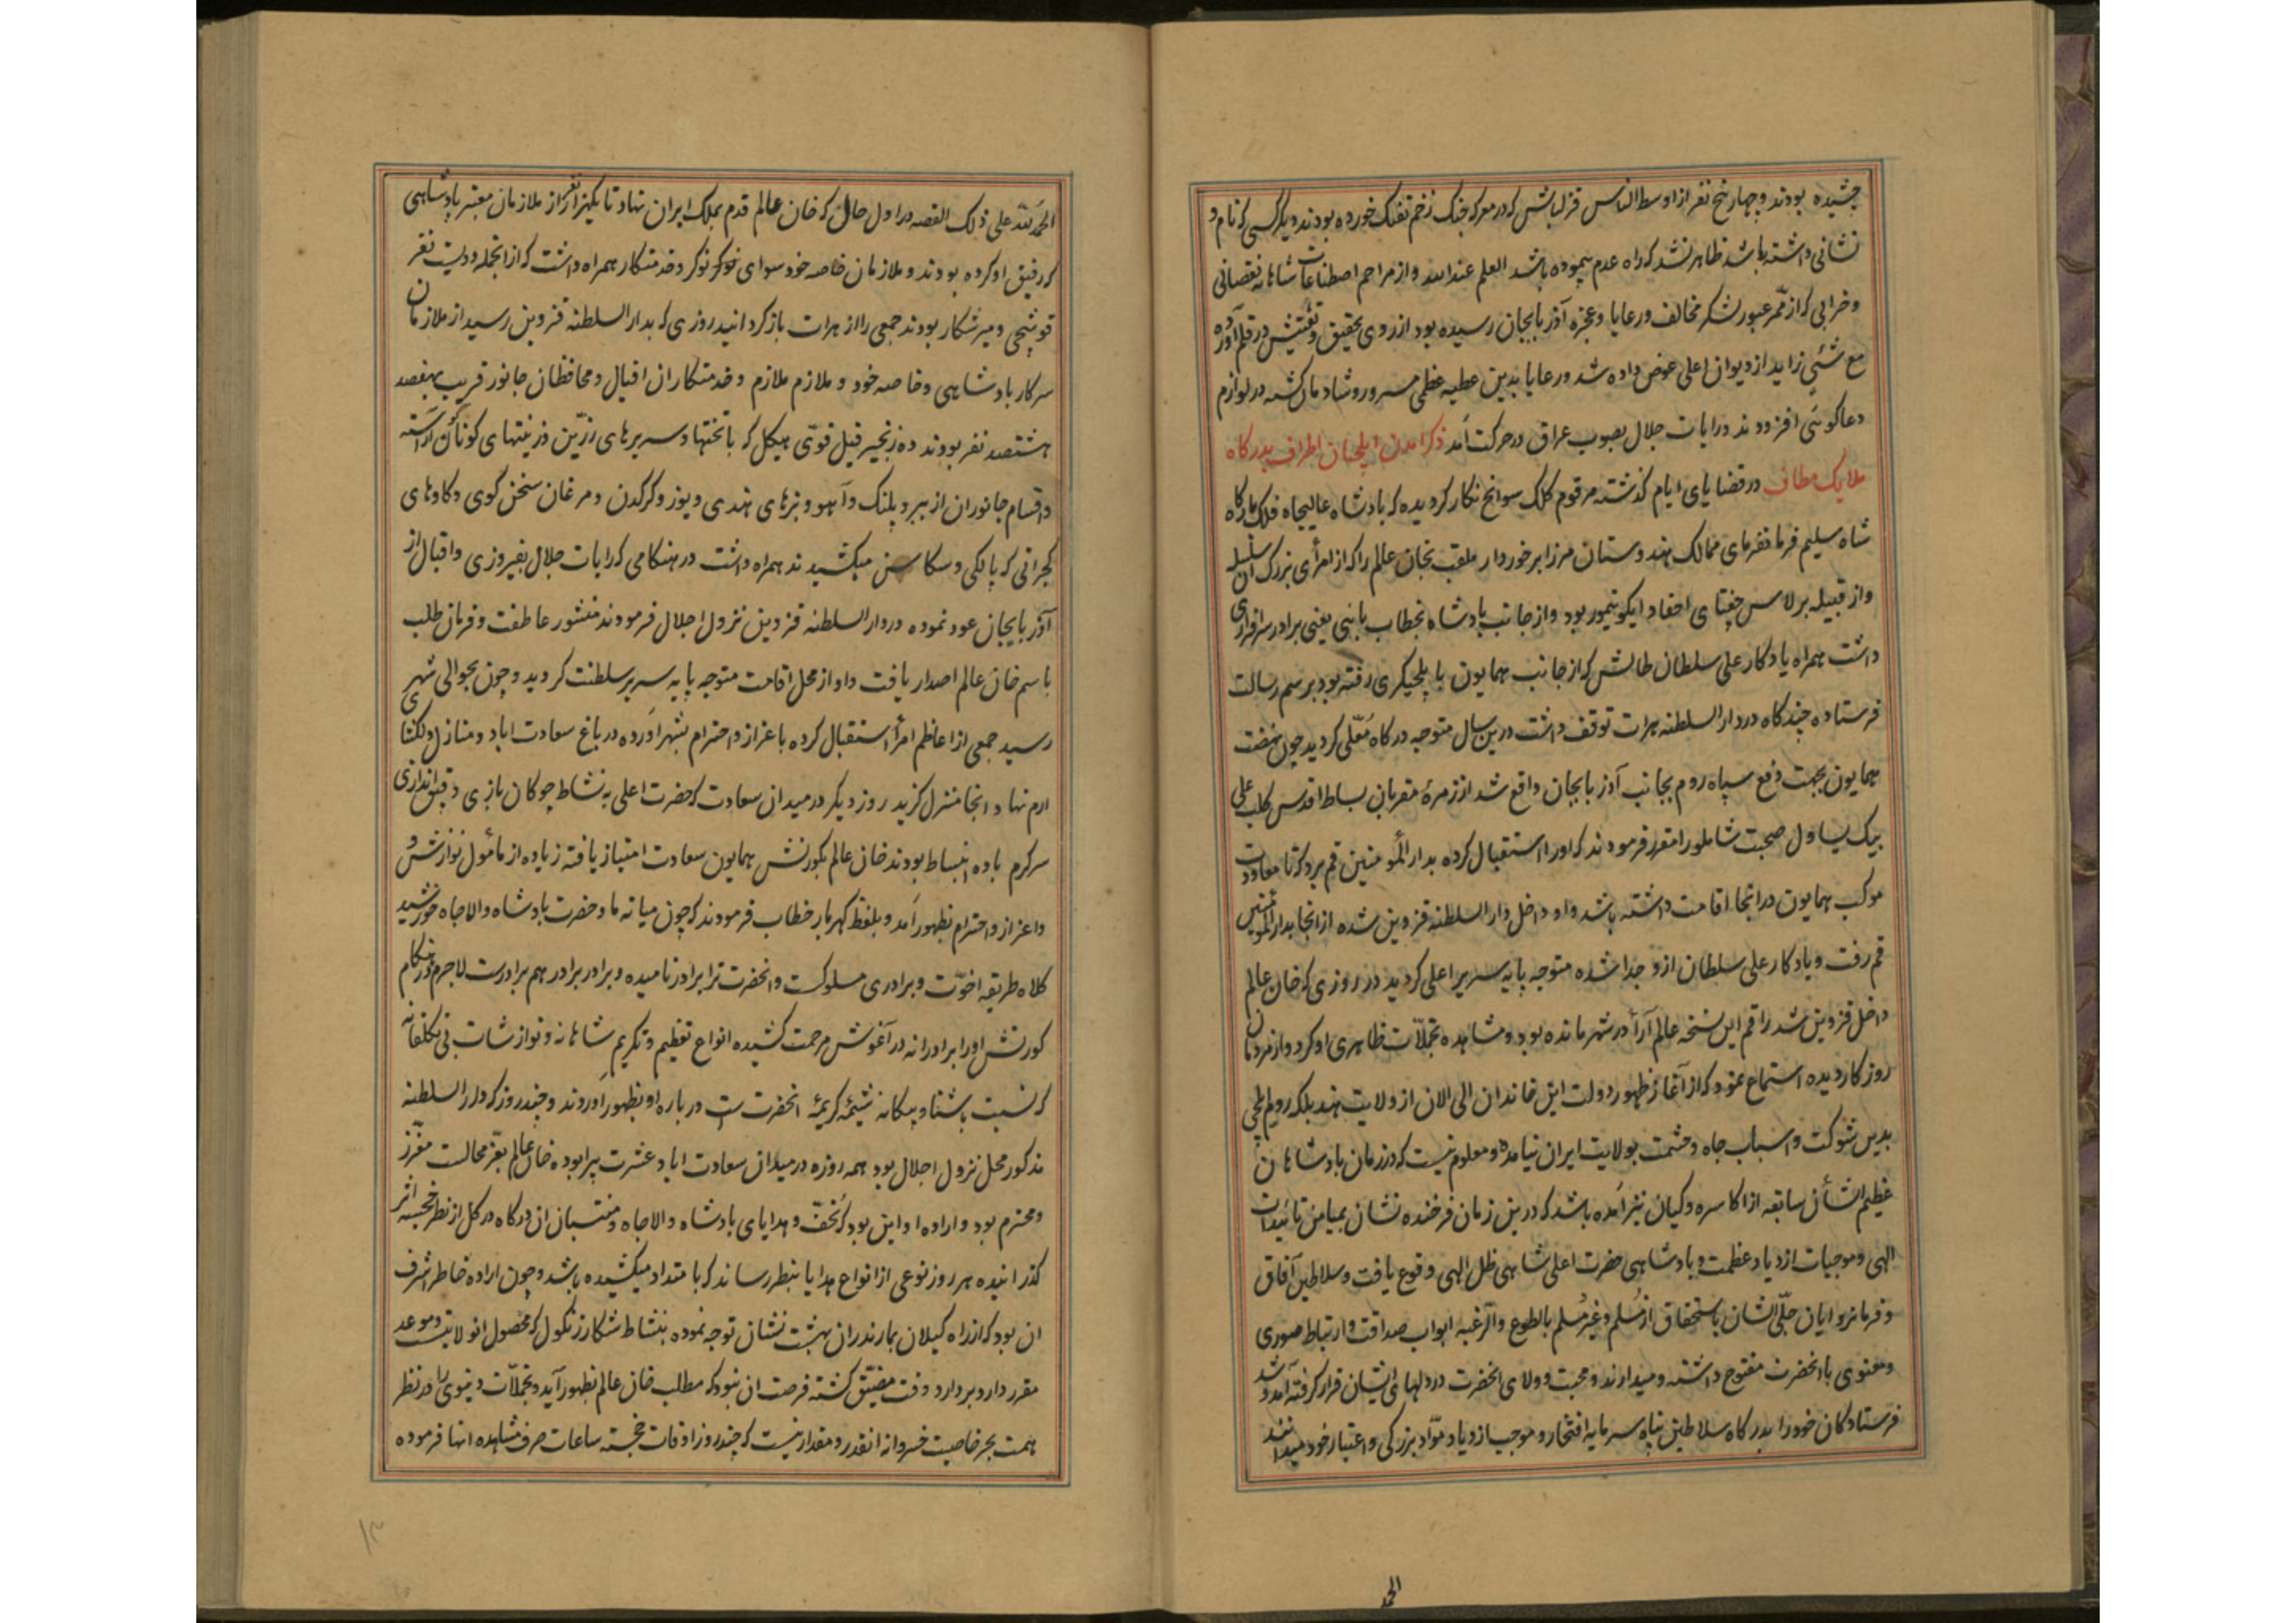 چشیده بودند و چهار پنج نفر از اوسط الناس قزلباش که در معرکه جنک زخم تفنک خورده بودند و یکر کسی که نام و
نشانی داشته باشد ظاهر نشد که راه عدم پیموده باشد العلم عند الله و از مراحم اصطناعات شاهانه نقصانی
و خرابی که از ممّر عبور لشکر مخالف ورعایا و عجزه آذربایجان رسیده بود از روی تحقیق و تفتیش در قلم آورده
مع شئیٍ زاید از دیوان اعلی عوض داده شد ورعایا بدین عطیه عظمی مسرور و شادمان کشته در لوازم
دعا کوئی افزودند و رایات جلال بصوب عراق در حرکت آمد ذکر امدن ایلچیان اطراف بدرکاه
ملایک مطاف در قضایای ایام کذشته مرقوم کلک سوانح نکار کردیده که پادشاه عالیجاه فلک بارکاه
شاه سلیم فرمانفرمای ممالک هندوستان مرزا برخوردار ملقب بخان عالم را که از امرأی بزرک آن سلسله
و از قبیله برلاس چغتای احفاد ایکو تیمور بود و از جانب پادشاه بخطاب یعنی برادر سرافرازی
داشت همراه یادکار علی سلطان طالش که از جانب همایون بایلچیکری رفته بود برسم رسالت
فرستاده چندکاه در دار السلطنه هرات توقف داشت درین سال متوجه درکاه مُعلّی کردید چون نهضت
همایون بجهت دفع سپاه روم بجانب آذربایجان واقع شد از زمرهٔ مقربان بساط اقدس کلب علی
بیک یساول صحبت شاملو را مقرر فرمودند که او را استقبال کرده بدار المؤمنین قم برد که تا معاودت
موکب همایون در انجا اقامت داشته باشد و او داخل دار السلطنه قزوین شده از انجا بدار المؤمنین
قم رفت و یادکار علی سلطان ازو جدا شده متوجه پایه سریر اعلی کردید در روزی که خان عالم
داخل قزوین شد راقم این نسخه عالم آرأ در شهر مانده بود و مشاهده تجملّات ظاهری او کرد و از مردمان
روزکار دیده استماع نمود که از آغاز ظهور دولت این خاندان الی الان از ولایت هند بلکه روم ایلچی
بدین شوکت و اسباب جاه و حشمت بولایت ایران نیامده و معلوم نیست که در زمان پادشاهان
عظیم الشأن سابقه از اکاسره و کیان نیز آمده باشد که درین زمان فرخنده نشان بمیامن تائیدات
الهی و موجبات ازدیاد عظمت و پادشاهی حضرت اعلی شاهی ظل الهی وقوع یافت و سلاطین آفاق
و فرمانروایان جلّی الشان باستحقاق از مُسلم و غیر مُسلم بالطوع والرغبه ابواب صداقت و ارتباط صوری
و معنوی با انحضرت مفتوح داشته و میدارند و محبت و ولای انحضرت در دلهای ایشان قرار کرفته آمد و شد
فرستادکان خود را بدرکاه سلاطین پناه سرمایه افتخار و موجب ازدیاد موّاد بزرکی و اعتبار خود میدانند
الحمد
الحمد لله علی ذلک القصه در اول حال که خان عالم قدم بملک ایران نهاد تا یکهزار نفر از ملازمان معتبر پادشاهی
که رفیق او کرده بودند و ملازمان خاصه خود سوای نوکر نوکر و خدمتکار همراه داشت که از انجمله دویست نفر
قوشچی و میر شکار بودند جمعی را از هرات باز کردانید روزی که بدار السلطنه قزوین رسید از ملازمان
سرکار پادشاهی و خاصه خود و ملازم ملازم و خدمتکاران افیال و محافظان جانور قریب بهفصد
هشتصد نفر بودند ده زنجیر فیل قوّی هیکل که با تختها و سریرهای زرّین و زینتهای کوناکون آراسته
و اقسام جانوران از ببر و پلنک و آهو و بزهای هندی و یوز و کرکدن و مرغان سخن گوی و کاوهای
کجراتی که پالکی و سکاسن میکشیدند همراه داشت در هنکامی که رایات جلال بفیروزی و اقبال از
آذربایجان عود نموده در دار السلطنه قزوین نزول اجلال فرمودند منشور عاطفت و فرمان طلب
باسم خان عالم اصدار یافت و او از محل اقامت متوجه پایه سریر سلطنت کردید و چون بحوالی شهر
رسید جمعی از اعاظم امرأ استقبال کرده باعزاز و احترام بشهر آورده در باغ سعادت اباد و منازل دلکشای
ارم نهاد انجا منزل کزید روز دیکر در میدان سعادت که حضرت اعلی به نشاط چوکان بازی و قپق اندازی
سرکرم باده انبساط بودند خان عالم بکورنش همایون سعادت امتیاز یافته زیاده از مأمول نوازش و
و اعزاز و احترام بظهور آمد و بلفظ کهربار خطاب فرمودند که چون میانه ما و حضرت پادشاه والا جاه خورشید
کلاه طریقه اخوّت و برادری مسلوکست و انحضرت ترا برادر نامیده و برادر برادر هم برادرست لاجرم در هنکام
کورنش او را برادرانه در آغوش مرحمت کشیده انواع تعظیم و تکریم شاهانه و نوازشات بی تکلفانه
که نسبت باشنا و بیکانه شیمهٔ کریمهٔ انحضرت است درباره او بظهور آوردند و چند روز که دار السلطنه
مذکور محل نزول اجلال بود همه روزه در میدان سعادت اباد عشرت پیرا بوده خان عالم بعّز مجالست معّزز
و محترم بود و اراده او این بود که تُحفّ و هدایای پادشاه والا جاه و منتسبان ان درکاه در کل از نظر خجسته اثر
کذرانیده هر روز نوعی از انواع هدایا بنظر رساند که بامتداد میکشیده باشد و چون اراده خاطر اشرف
ان بود که از راه کیلان بمازندران بهشت نشان توجه نموده بنشاط شکار زنکول که محصول انولایتست و موعد
مقرر دارد بردارد وقت مضیّق کشته فرصت ان نبود که مطلب خان عالم بظهور آید و تجملّات دنیوی را در نظر
همت بحر خاصیت خسروانه انقدر و مقدار نیست که چند روز اوقات خجسته ساعات صرف مشاهده انها فرموده
۱۳